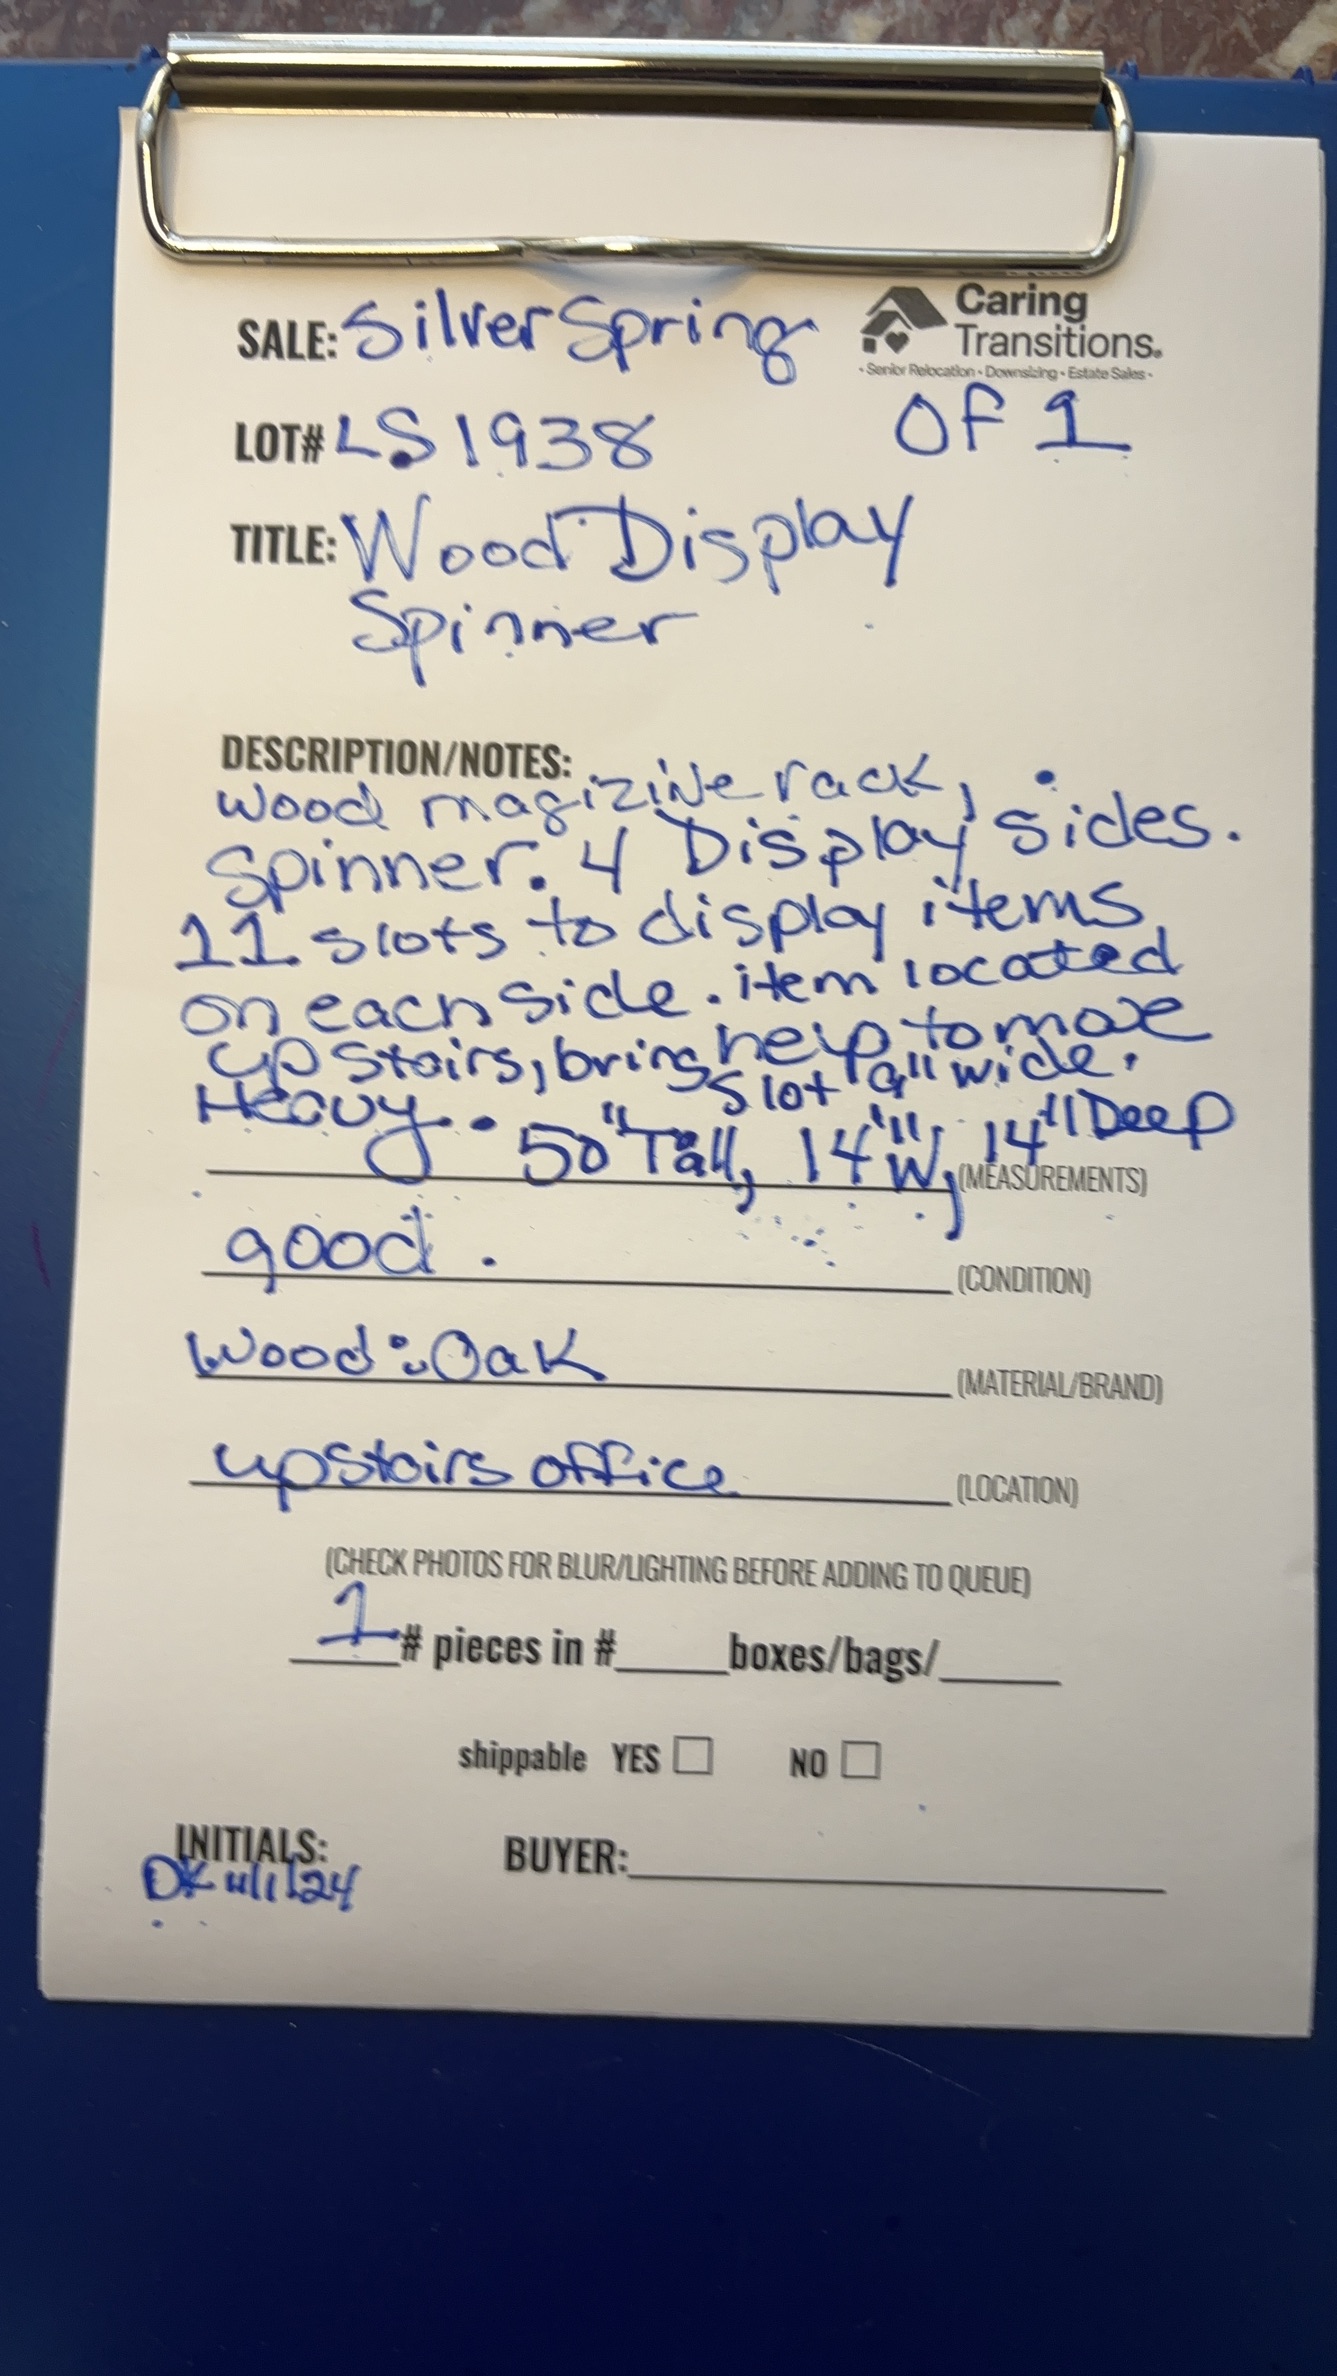 SALE: Silver Spring
Caring
Transitions®
• Senior Relocation • Downsizing • Estate Sales •
LOT# LS1938
OF 1
TITLE: Wood Display
Spinner
DESCRIPTION/NOTES:
wood magizine rack,
Spinner. 4 Display sides.
11 slots to display items
on each side. item located
up stairs, bring help to move
Heavy. slot 9" wide.
50" Tall, 14" W, 14" Deep
(MEASUREMENTS)
good. (CONDITION)
Wood: Oak (MATERIAL/BRAND)
upstairs office (LOCATION)
(CHECK PHOTOS FOR BLUR/LIGHTING BEFORE ADDING TO QUEUE)
1 # pieces in #____ boxes/bags/____
shippable YES ☐ NO ☐
INITIALS: BUYER:
DK 11/1/24